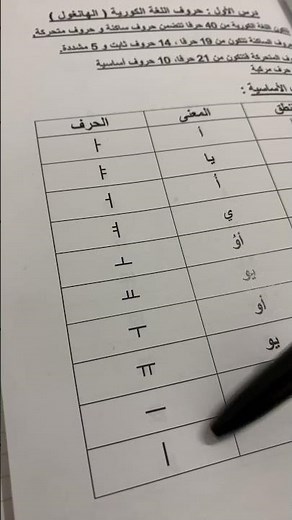 درس الأول : حروف اللغة الكورية ( الهانغول )
تتكون اللغة الكورية من 40 حرفا تتضمن حروف ساكنة و حروف متحركة
الساكنة تتكون من 19 حرفا ، 14 حرف ثابت و 5 مشددة
المتحركة فتتكون من 21 حرفا، 10 حروف أساسية
حرف مركبة
الأساسية :
الحرف المعنى نطق
ㅏ أ
ㅑ يا
ㅓ أ
ㅕ ي
ㅗ أؤ
ㅛ يو
ㅜ أو
ㅠ يو
ㅡ
ㅣ